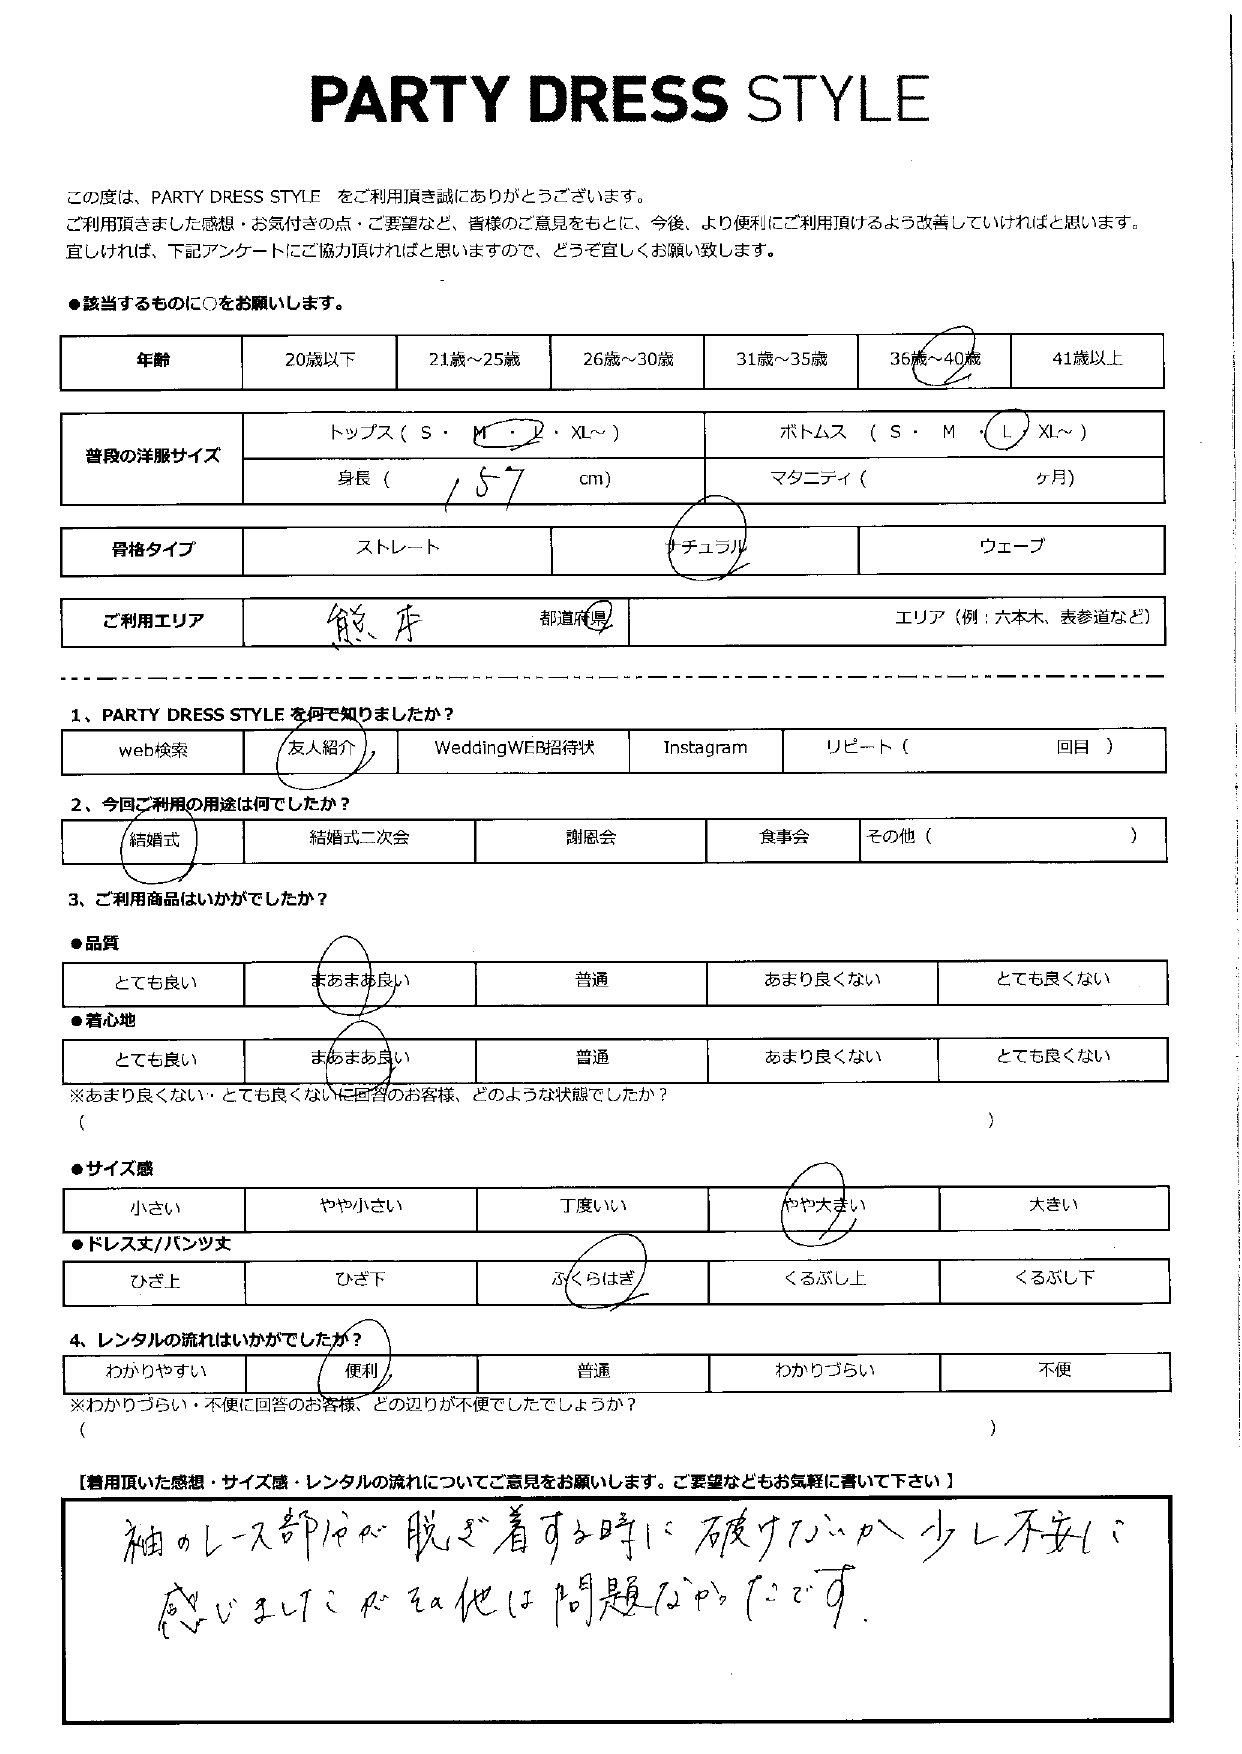 PARTY DRESS STYLE
この度は、PARTY DRESS STYLE をご利用頂き誠にありがとうございます。
ご利用頂きました感想・お気付きの点・ご要望など、皆様のご意見をもとに、今後、より便利にご利用頂けるよう改善していければと思います。
宜しければ、下記アンケートにご協力頂ければと思いますので、どうぞ宜しくお願い致します。
●該当するものに○をお願いします。
年齢 20歳以下 21歳～25歳 26歳～30歳 31歳～35歳 36歳～40歳 41歳以上
普段の洋服サイズ
トップス ( S ・ M ・ L ・ XL～ ) ボトムス ( S ・ M ・ L ・ XL～ )
身長 ( 157 cm) マタニティ ( ヶ月)
骨格タイプ ストレート ナチュラル ウェーブ
ご利用エリア 熊本 都道府県 エリア (例：六本木、表参道など)
1、PARTY DRESS STYLE を何で知りましたか？
web検索 友人紹介 WeddingWEB招待状 Instagram リピート ( 回目 )
2、今回ご利用の用途は何でしたか？
結婚式 結婚式二次会 謝恩会 食事会 その他 ( )
3、ご利用商品はいかがでしたか？
●品質
とても良い まあまあ良い 普通 あまり良くない とても良くない
●着心地
とても良い まあまあ良い 普通 あまり良くない とても良くない
※あまり良くない・とても良くないに回答のお客様、どのような状態でしたか？
( )
●サイズ感
小さい やや小さい 丁度いい やや大きい 大きい
●ドレス丈/パンツ丈
ひざ上 ひざ下 ふくらはぎ くるぶし上 くるぶし下
4、レンタルの流れはいかがでしたか？
わかりやすい 便利 普通 わかりづらい 不便
※わかりづらい・不便に回答のお客様、どの辺りが不便でしたでしょうか？
( )
【着用頂いた感想・サイズ感・レンタルの流れについてご意見をお願いします。ご要望などもお気軽に書いて下さい】
袖のレース部分が脱ぎ着する時に破けないか少し不安に
感じましたがその他は問題なかったです.